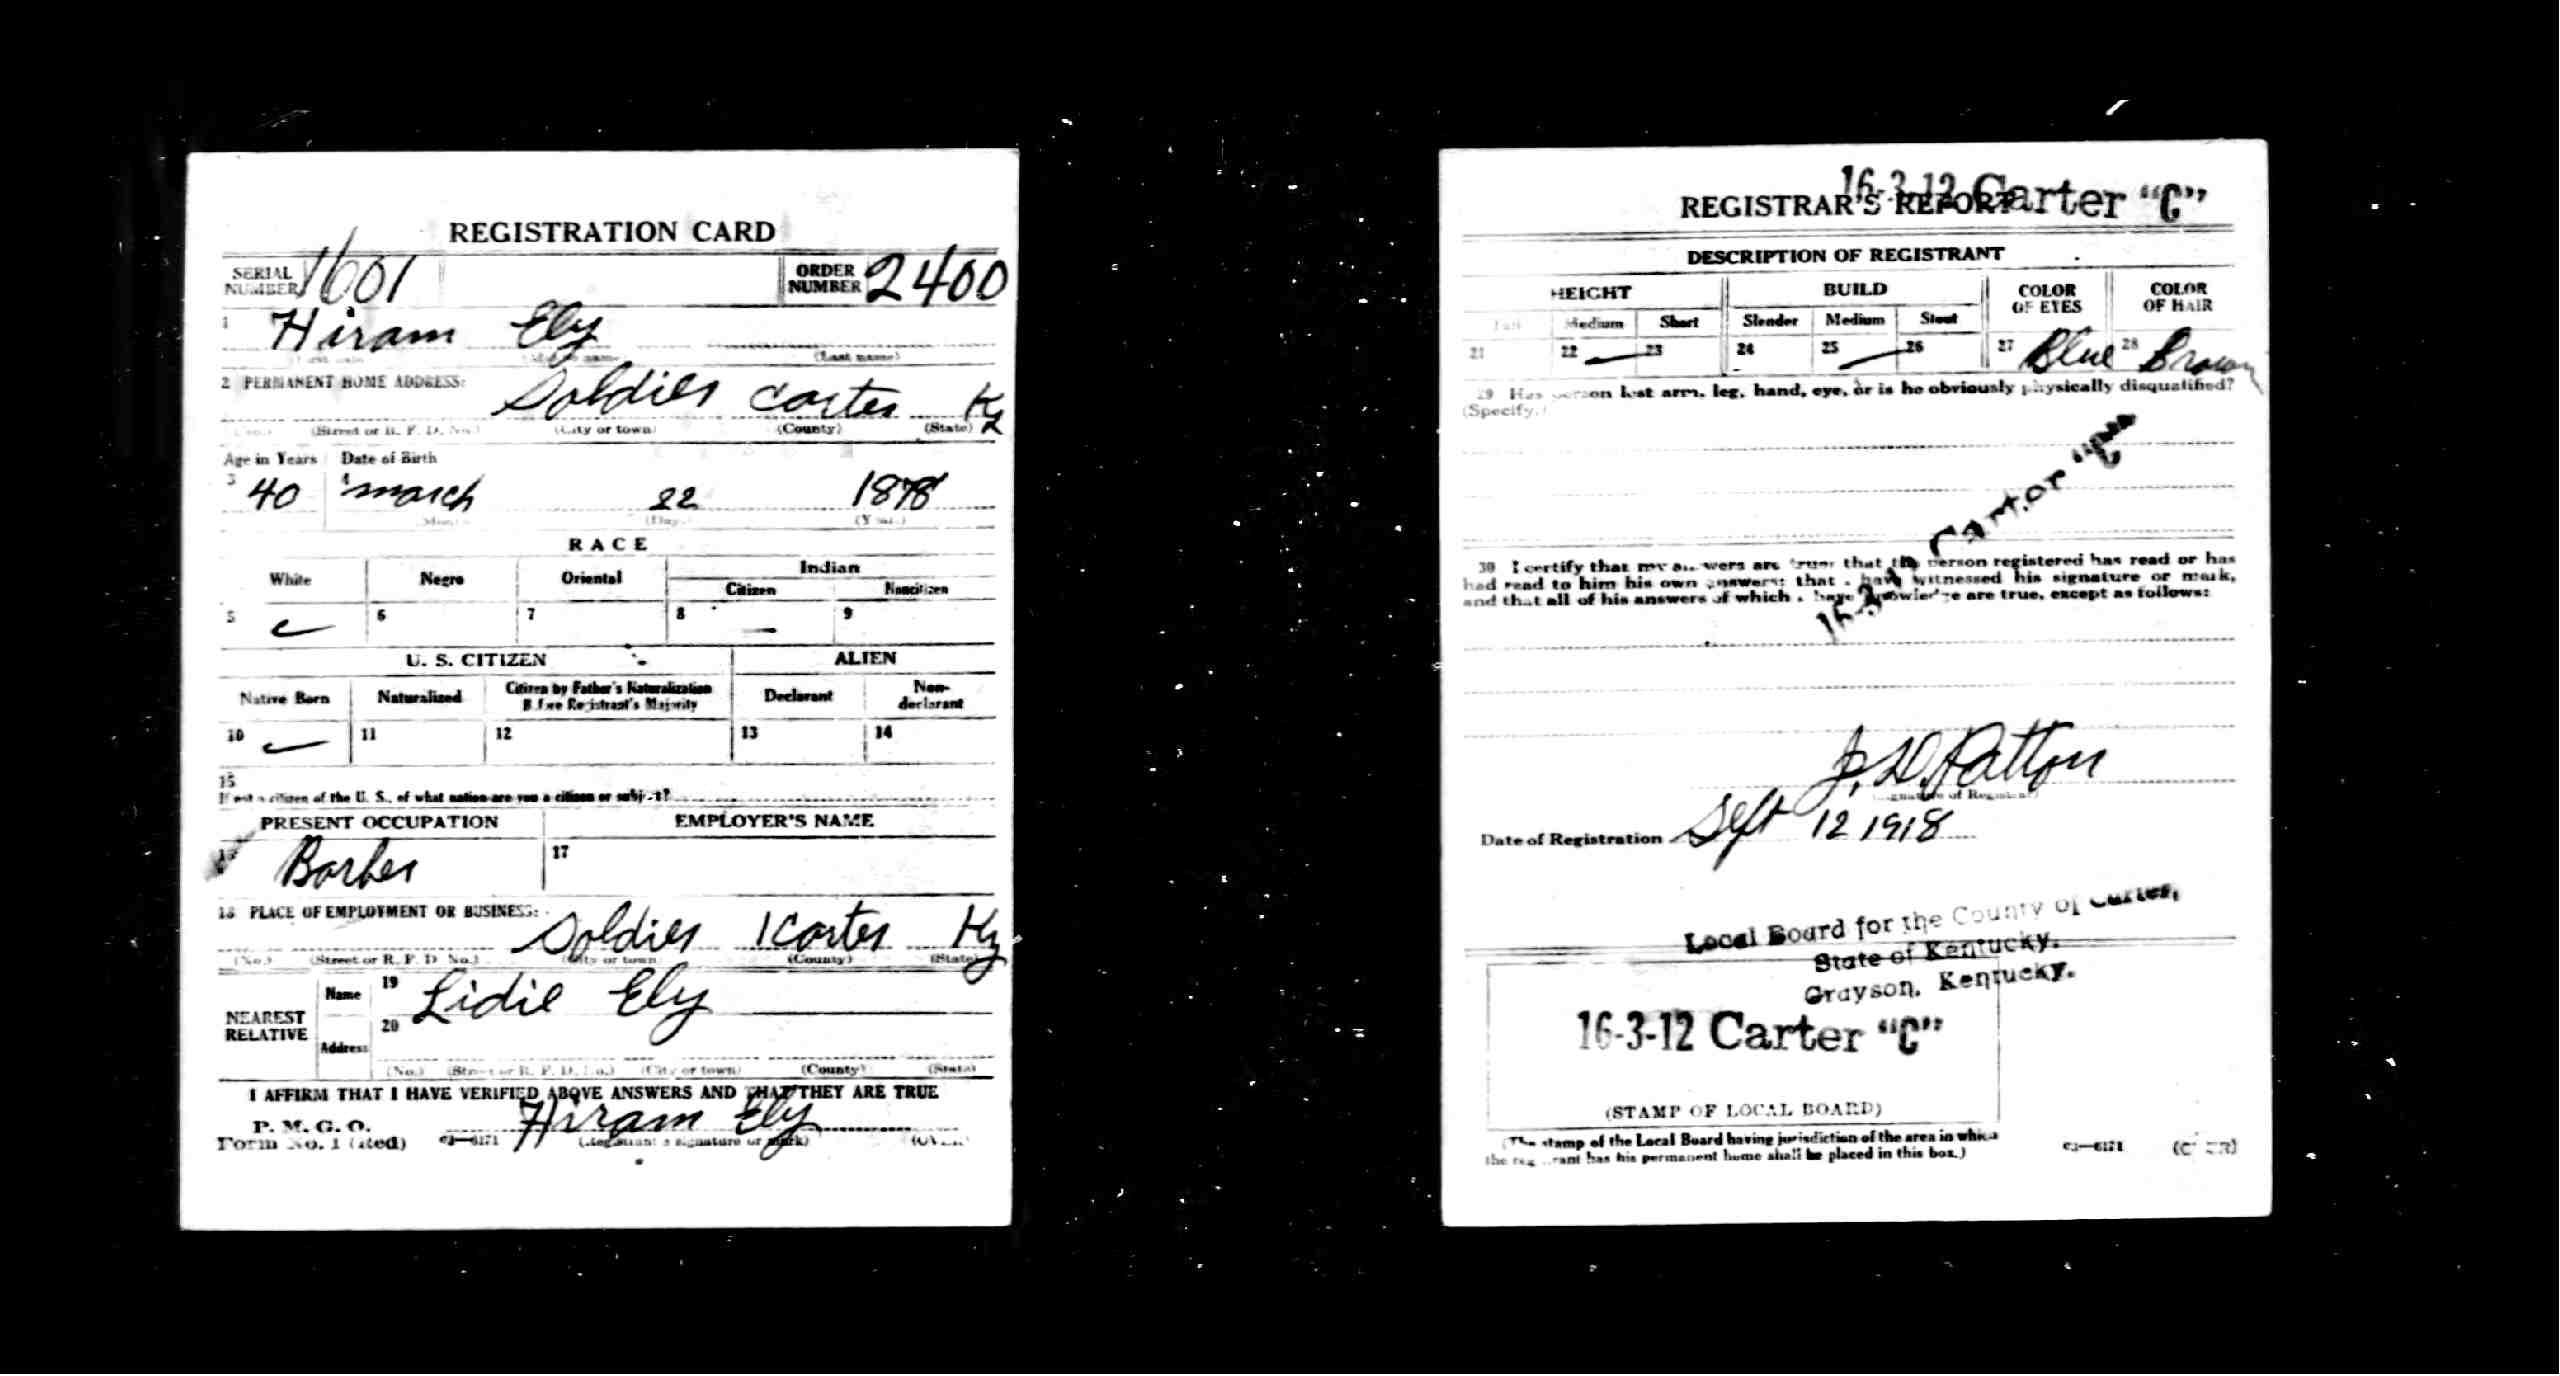 REGISTRATION CARD
SERIAL NUMBER 1601 ORDER NUMBER 2400
1 Hiram Ely
(Last name)
2 PERMANENT HOME ADDRESS: Soldier Carter Ky
(Street or R. F. D. No.) (City or town) (County) (State)
Age in Years Date of Birth
3 40 4 march 22 1878
(Month) (Day) (Year)
RACE
White Negro Oriental Indian
Citizen Noncitizen
5 6 7 8 9
U. S. CITIZEN ALIEN
Native Born Naturalized Citizen by Father's Naturalization Before Registrant's Majority Declarant Non-declarant
10 11 12 13 14
15
If not a citizen of the U. S., of what nation are you a citizen or subject?
PRESENT OCCUPATION EMPLOYER'S NAME
Barber 17
18 PLACE OF EMPLOYMENT OR BUSINESS: Soldier Carter Ky
(No.) (Street or R. F. D. No.) (City or town) (County) (State)
NEAREST RELATIVE Name 19 Lidie Ely
Address 20
(No.) (Street or R. F. D. No.) (City or town) (County) (State)
I AFFIRM THAT I HAVE VERIFIED ABOVE ANSWERS AND THAT THEY ARE TRUE
P. M. G. O.
Form No. 1 (Red) 03—6171 Hiram Ely
(Registrant's signature or mark) (OVER)
16-3-12 Carter "C"
REGISTRAR'S REPORT
DESCRIPTION OF REGISTRANT
HEIGHT BUILD COLOR OF EYES COLOR OF HAIR
Tall Medium Short Slender Medium Stout
21 22 23 24 25 26 27 Blue 28 Brown
29 Has person lost arm, leg, hand, eye, or is he obviously physically disqualified?
(Specify.)
16-3-12 Carter "C"
30 I certify that my answers are true; that the person registered has read or has
had read to him his own answers; that I have witnessed his signature or mark,
and that all of his answers of which I have knowledge are true, except as follows:
J. D. Patton
(Signature of Registrar)
Date of Registration Sept 12 1918
Local Board for the County of Carter,
State of Kentucky.
Grayson, Kentucky.
16-3-12 Carter "C"
(STAMP OF LOCAL BOARD)
(The stamp of the Local Board having jurisdiction of the area in which
the registrant has his permanent home shall be placed in this box.)
03—6171 (OVER)